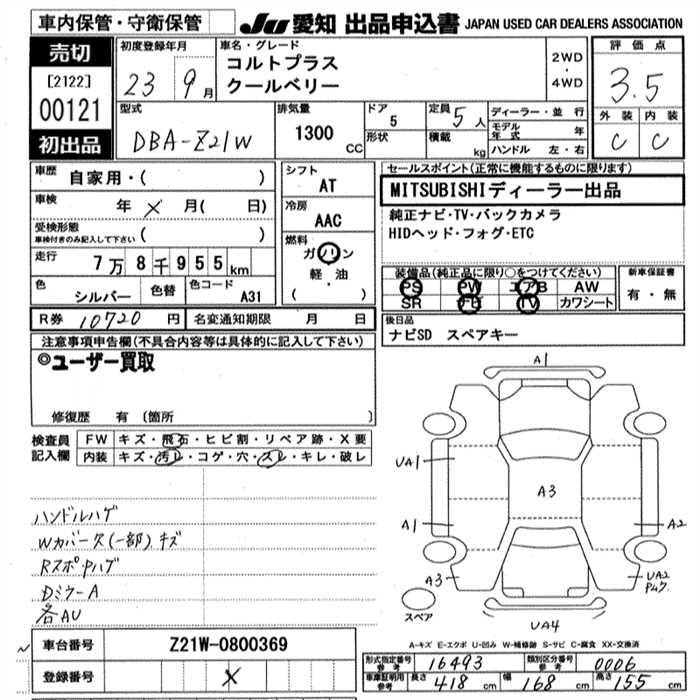 車内保管・守衛保管
JU 愛知 出品申込書 JAPAN USED CAR DEALERS ASSOCIATION
売切
[2122]
00121
初出品
初度登録年月
23 9月
車名・グレード
コルトプラス
クールベリー
2WD
・
4WD
評価点
3.5
外装 内装
C C
型式
DBA-Z21W
排気量
1300
CC
ドア
5
形状
定員
5人
積載
kg
ディーラー・並 行
モデル年式 年
ハンドル 左・右
車歴
自家用・( )
車検
年 × 月( 日)
受検形態
車検付きのみ記入して下さい ( )
走行
7万8千955km
色
シルバー
色替
色コード
A31
R券 10720 円 名変通知期限 月 日
シフト
AT
冷房
AAC
燃料
ガソリン
軽・油
( )
セールスポイント(正常に機能するものに限ります)
MITSUBISHIディーラー出品
純正ナビ・TV・バックカメラ
HIDヘッド・フォグ・ETC
装備品(純正品に限り○をつけてください)
PS PW エアB AW
SR TV カワシート
新車保証書
有・無
後日品
ナビSD スペアキー
注意事項申告欄(不具合内容等は具体的に記入して下さい)
◎ユーザー買取
修復歴 有 (箇所 )
検査員
記入欄
FW キズ・飛石・ヒビ割・リペア跡・X要
内装 キズ・汚レ・コゲ・穴・スレ・キレ・破レ
ハンドルハゲ
Wカバー欠(一部)キズ
RスポPハゲ
Dミラー A
各AU
A1
UA1
A3
A1
A2
A3
UA2
スペア
UA4
A-キズ E-エクボ U-凹み W-補修跡 S-サビ C-腐食 XX-交換済
車台番号 Z21W-0800369
登録番号 ×
形式指定番号 参考 16493 類別区分番号 参考 0006
車庫証明用 参考 長さ 418 cm 幅 168 cm 高さ 155 cm